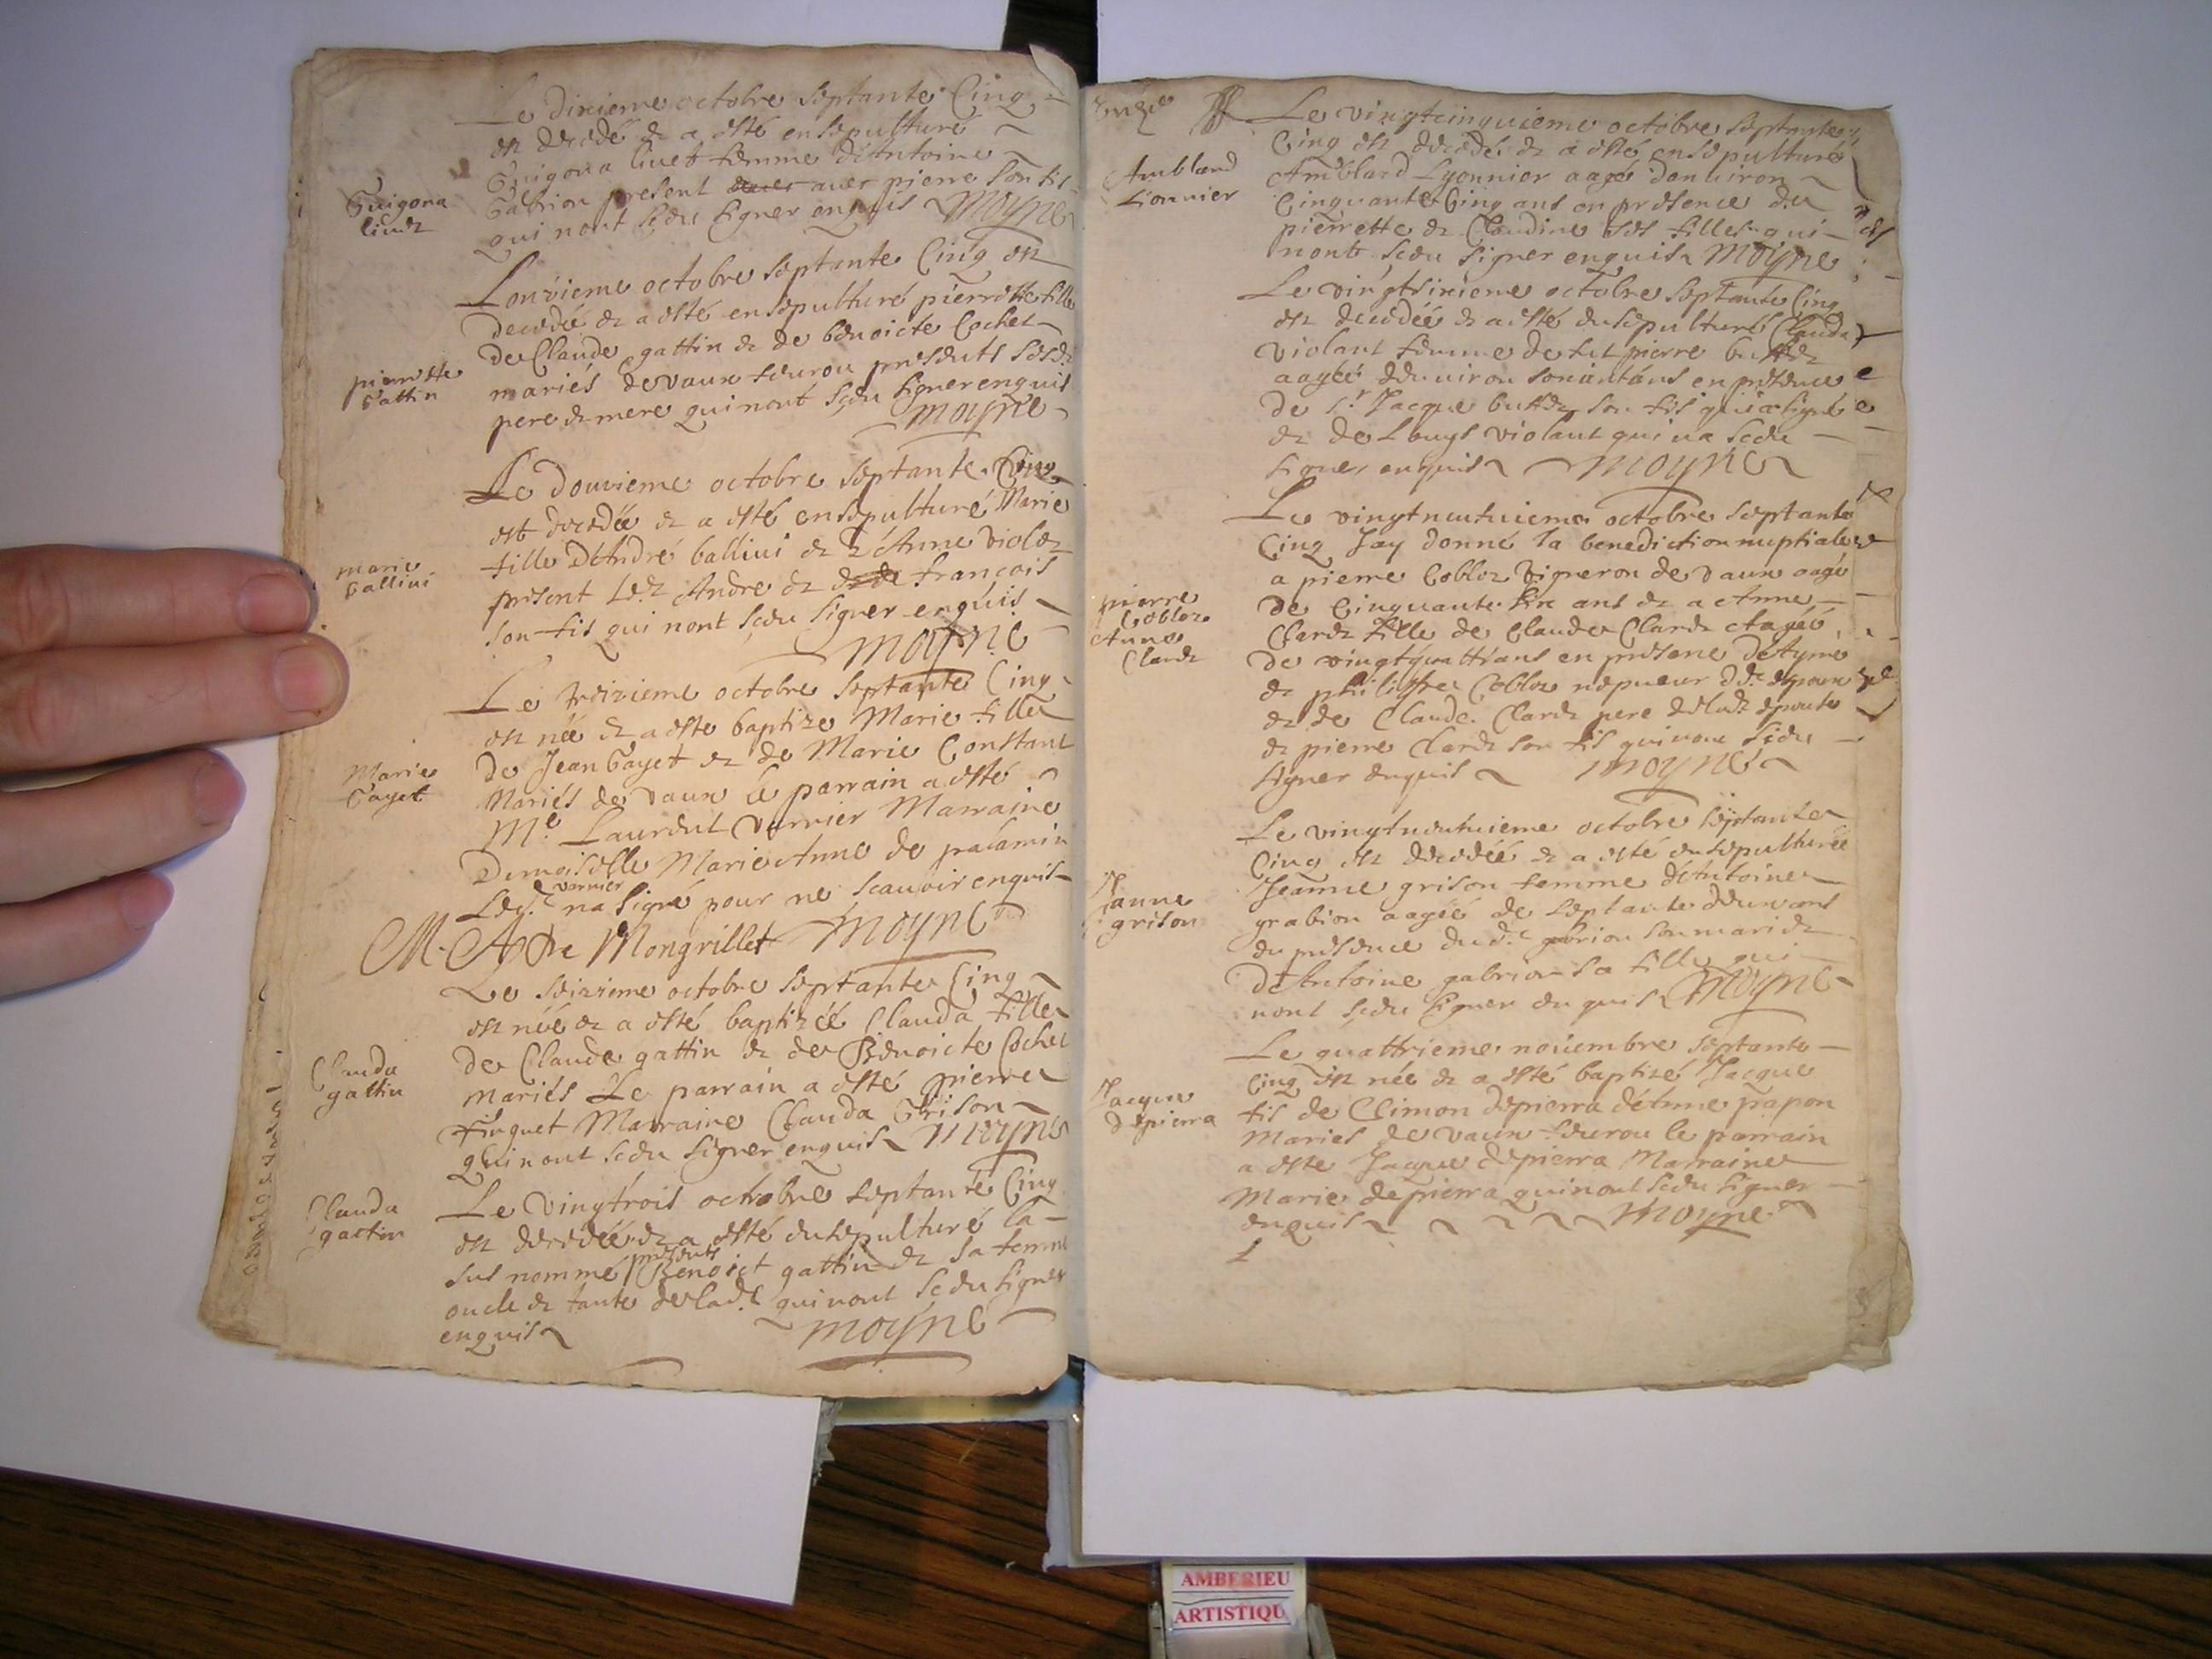 Le dixieme octobre septante Cinq
est decedé et a esté ensepulturé
Guigona livet femme d'Antoine
Gabrion present avec pierre son fils
qui n'ont sçeu signer enquis Moyne
Guigona
livet
L'onzieme octobre septante Cinq est
decedée et a esté ensepulturé pierrette fille
de Claude gattin et de benoicte Cochet
mariés de vaux presents sesd.
pere et mere qui n'ont sçeu signer enquis
moyne
pierrette
Gattin
Le douzieme octobre septante Cinq
est decedée et a esté ensepulturé Marie
fille d'André ballivi et d'Anne violet
present led. Andre et de françois
son fils qui n'ont sçeu signer enquis
moyne
marie
ballivi
Le treizieme octobre septante Cinq
est née et a esté baptize Marie fille
de Jean Gayet et de Marie Constant
Mariés de vaux le parrain a esté
Me. Laurent varnier Marraine
Demoiselle Marie Anne de
varnier
Led. n'a signé pour ne scavoir enquis
M. A De Mongrillet Moyne
Marie
Gayet
Le seizieme octobre septante Cinq
est née et a esté baptizée Clauda fille
de Claude gattin et de Benoicte Cochet
mariés Le parrain a esté pierre
finquet Marraine Clauda Grison
qui n'ont sçeu signer enquis Moyne
Clauda
gattin
Le vingtrois octobre septante Cinq
est decedée et a esté ensepulturé la
presents
sus nommé Benoict gattin et sa femme
oncle et tante de lad. qui n'ont sçeu signer
enquis moyne
Clauda
gattin
Le vingtcinquieme octobre septante
Cinq est decedé et a esté ensepulturé
Amblard Lyonnier aagé d'environ
Cinquante Cinq ans en presence de
pierrette et Claudine ses filles qui
n'ont sçeu signer enquis moyne
Amblard
Lionnier
Le vingtsixieme octobre septante Cinq
est decedée et a esté ensepulturé Clauda
violant femme de fut pierre buttet
aagée d'environ soixante ans en presence
de sr. Jacque buttet son fils qui a signé
et de Louys violant qui n'a sçeu
signer enquis moyne
Le vingtneufvieme octobre septante
Cinq J'ay donné la benediction nuptiale
a pierre Coblot vigneron de vaux aagé
de Cinquante six ans et a Anne
Claret fille de Claude Claret Aagée
de vingtquattr'ans en presence d'Ayme
et philippe Coblot nepueux dud. epoux
et de Claude Claret pere de lad. epouse
et pierre Claret son fils qui n'ont sçeu
signer enquis moyne
pierre
Coblot
Anne
Claret
Le vingtneufvieme octobre septante
Cinq est decedée et a esté ensepulturée
Jeanne grison femme d'Antoine
grabion aagée de septante deux ans
en presence dud. gabrion son mari et
d'Antoine gabrion sa fille qui
n'ont sçeu signer enquis Moyne
Janne
grison
Le quattrieme novembre septante
Cinq est née et a esté baptizé Jacque
fils de Climon depierra d'Anne papon
Mariés de vaux le parrain
a esté Jacque depierra Marraine
Marie depierra qui n'ont sçeu signer
enquis Moyne
Jacque
depierra
AMBERIEU
ARTISTIQU